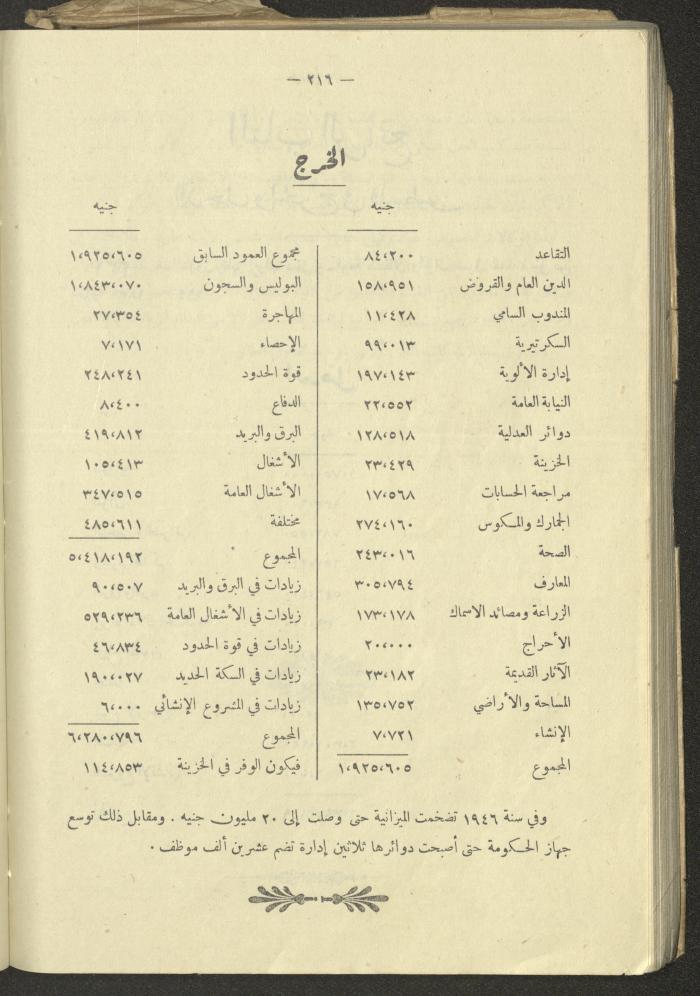 — ٢١٦ —
الخرج
جنيه
التقاعد ٨٤،٢٠٠
الدين العام والقروض ١٥٨،٩٥١
المندوب السامي ١١،٤٢٨
السكرتيرية ٩٩،٠١٣
إدارة الألوية ١٩٧،١٤٣
النيابة العامة ٢٢،٥٥٢
دوائر العدلية ١٢٨،٥١٨
الخزينة ٢٣،٤٢٩
مراجعة الحسابات ١٧،٥٦٨
الجمارك والمكوس ٢٧٤،١٦٠
الصحة ٢٤٣،٠١٦
المعارف ٣٠٥،٧٩٤
الزراعة ومصائد الاسماك ١٧٣،١٧٨
الأحراج ٢٠،٠٠٠
الآثار القديمة ٢٣،١٨٢
المساحة والأراضي ١٣٥،٧٥٢
الإنشاء ٧،٧٢١
المجموع ١،٩٢٥،٦٠٥
جنيه
مجموع العمود السابق ١،٩٢٥،٦٠٥
البوليس والسجون ١،٨٤٣،٠٧٠
المهاجرة ٢٧،٣٥٤
الإحصاء ٧،١٧١
قوة الحدود ٢٤٨،٢٤١
الدفاع ٨،٤٠٠
البرق والبريد ٤١٩،٨١٢
الأشغال ١٠٥،٤١٣
الأشغال العامة ٣٤٧،٥١٥
مختلفة ٤٨٥،٦١١
المجموع ٥،٤١٨،١٩٢
زيادات في البرق والبريد ٩٠،٥٠٧
زيادات في الأشغال العامة ٥٢٩،٢٣٦
زيادات في قوة الحدود ٤٦،٨٣٤
زيادات في السكة الحديد ١٩٠،٠٢٧
زيادات في المشروع الإنشائي ٦،٠٠٠
المجموع ٦،٢٨٠،٧٩٦
فيكون الوفر في الخزينة ١١٤،٨٥٣
وفي سنة ١٩٤٦ تضخمت الميزانية حتى وصلت إلى ٢٠ مليون جنيه . ومقابل ذلك توسع
جهاز الحكومة حتى أصبحت دوائرها ثلاثين إدارة تضم عشرين ألف موظف .